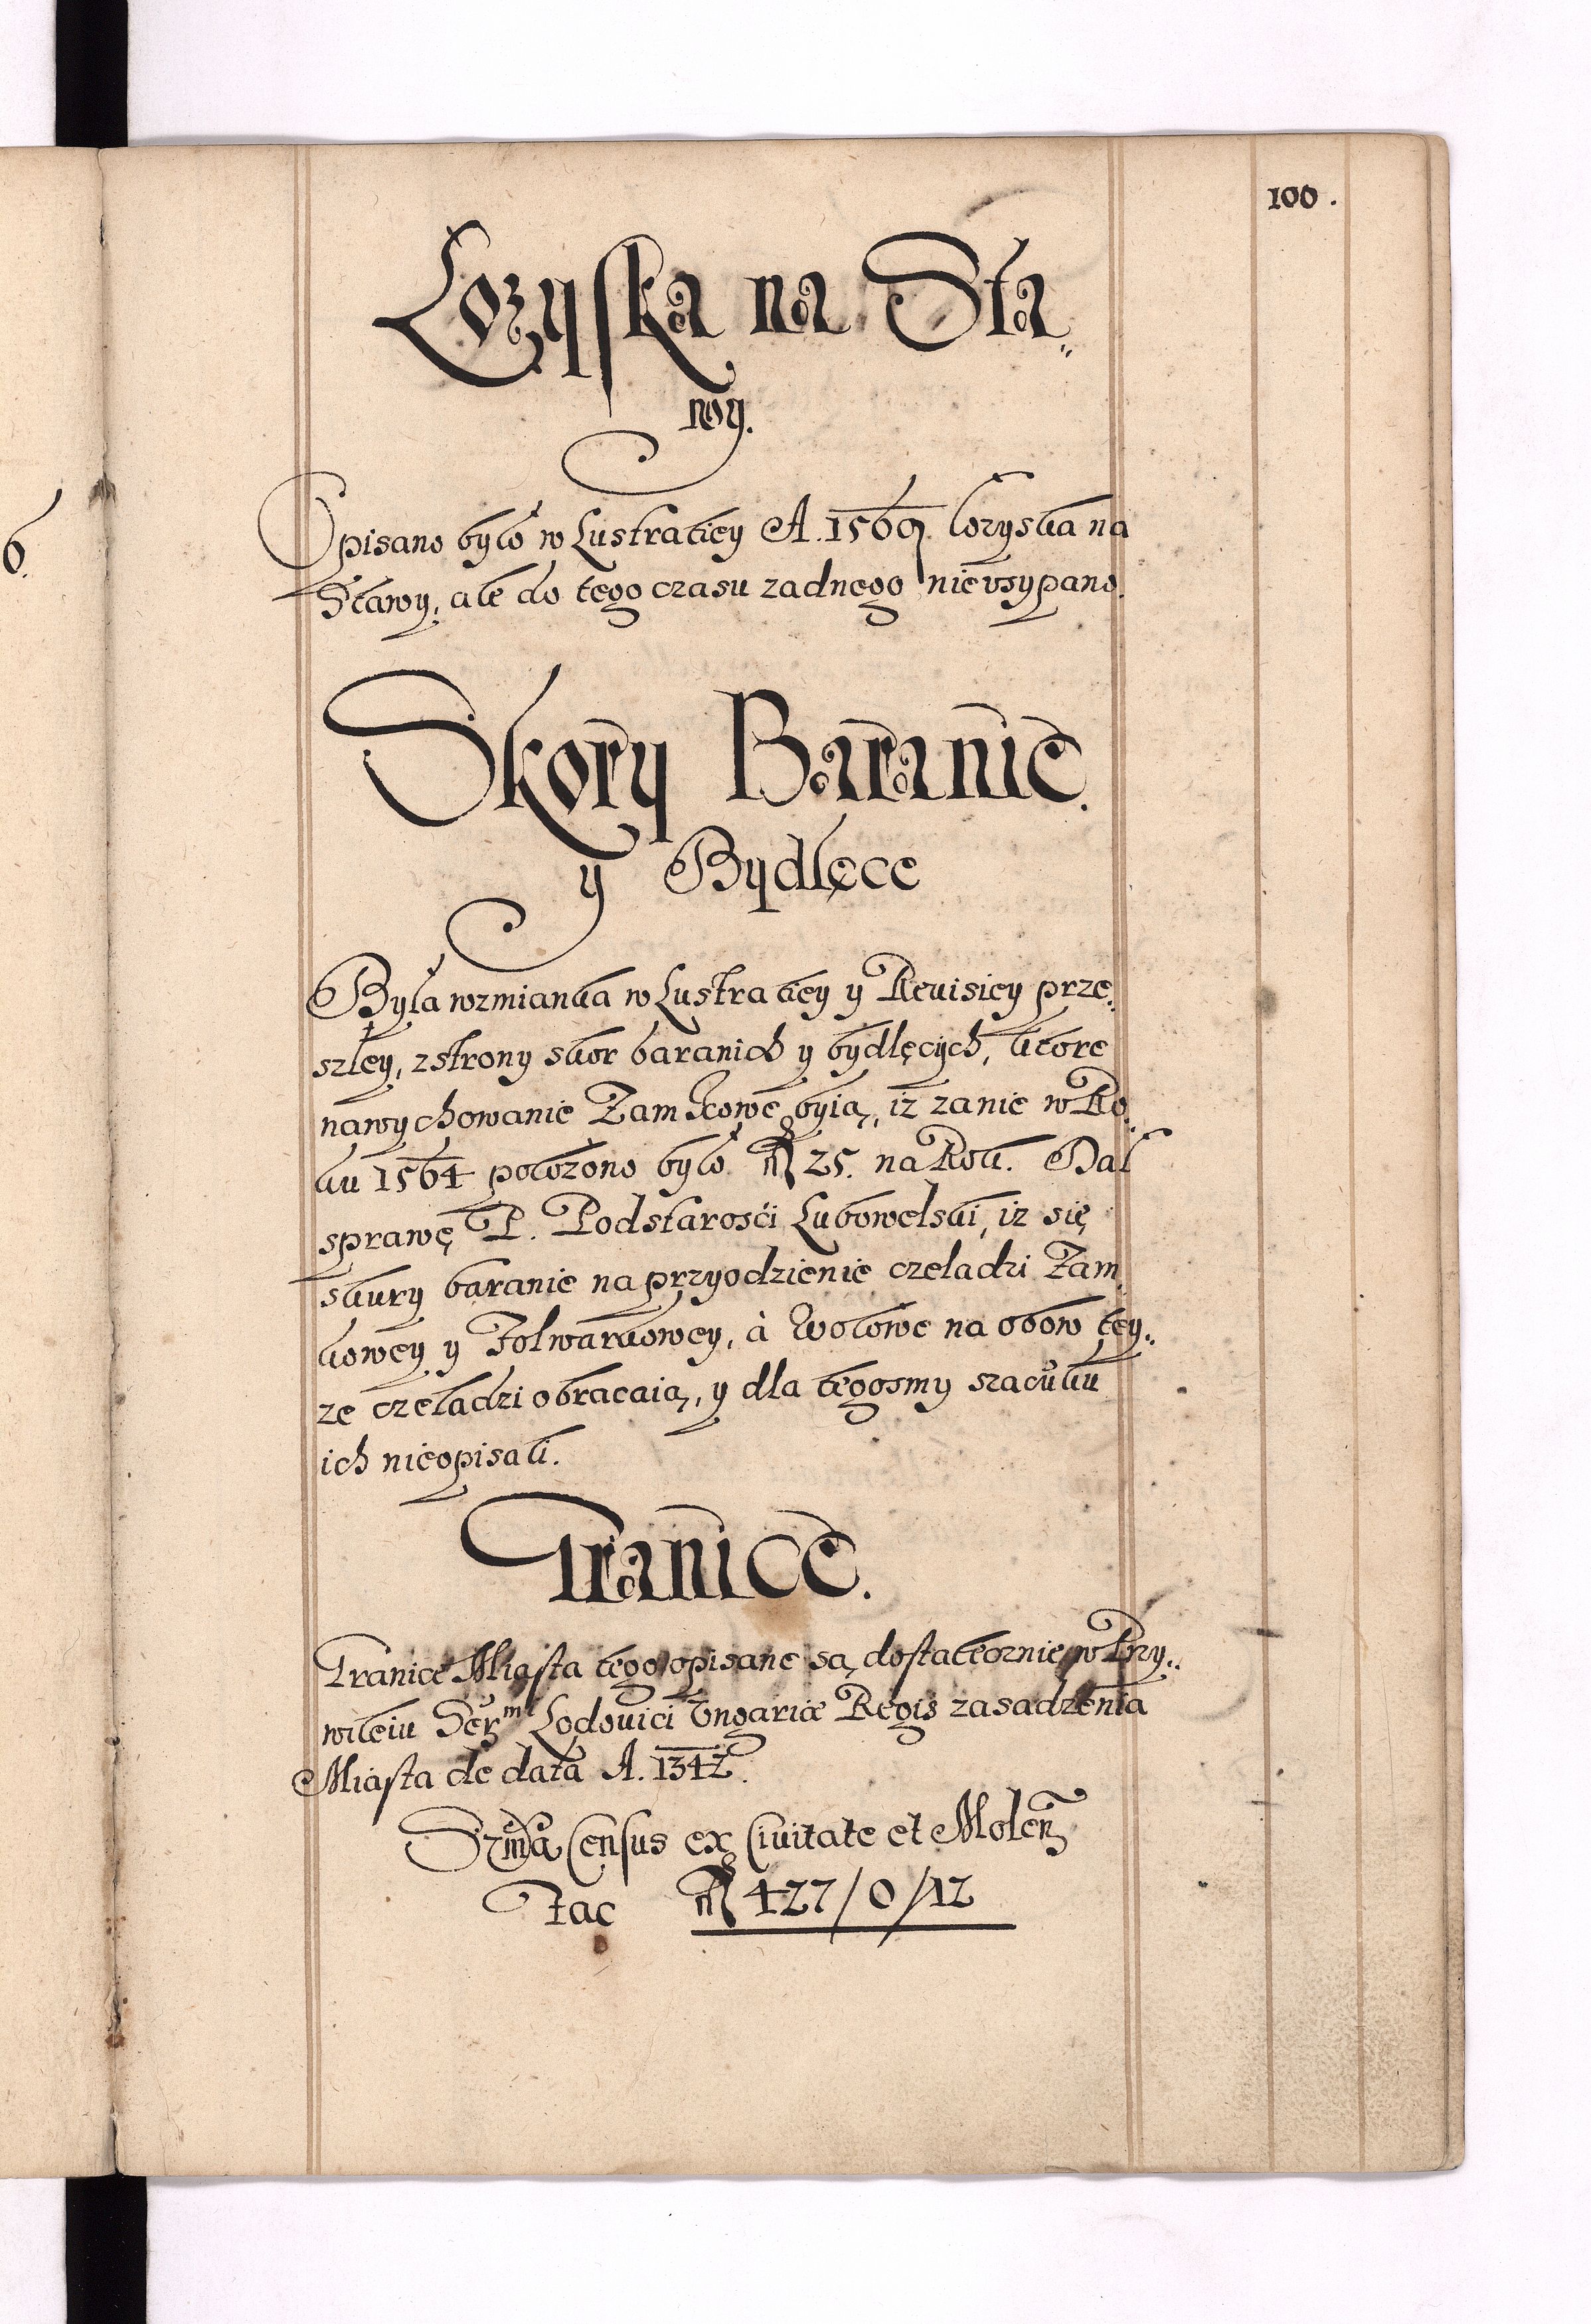 100.
Lozyska na Sta„
wy.
Opisano było w Lustratiey A. 1569 lozyska na
Stawy, ale do tego czasu zadnego nie vsypano.
Skory Baranie.
y Bydlęce
Była wzmianka w Lustratiey y Reuisiey prze„
szłey, z strony skor baranich y bydlęcych, ktore
na wychowanie Zamkowe byią, iz za nie w Ro„
ku 1564 połozono było fl 25. na Rok. Dał
sprawę P. Podstarosći Lubowelski, iz się
skury baranie na przyodzienie czeladzi Zam„
kowey y Folwarkowey, à Wołowe na obow tey„
ze czeladzi obracaią, y dla tegosmy szacuku
ich nie opisali.
Granice.
Granice Miasta tego opisane są dostatecznie w Przy„
wileiu Serm Lodouici Vngariæ Regis zasadzenia
Miasta de data A. 1342.
Suma Census ex Ciuitate et Molen
Fac fl 427/0/12
6.